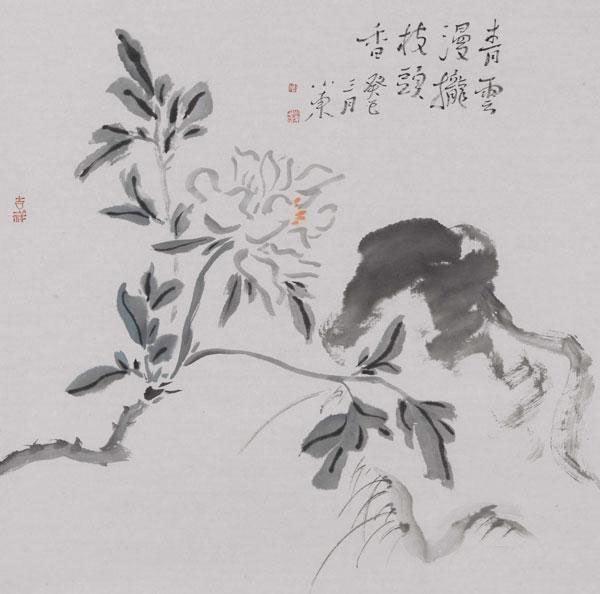 青雲
漫攏
枝頭
香
癸巳
三月
小東
吉祥